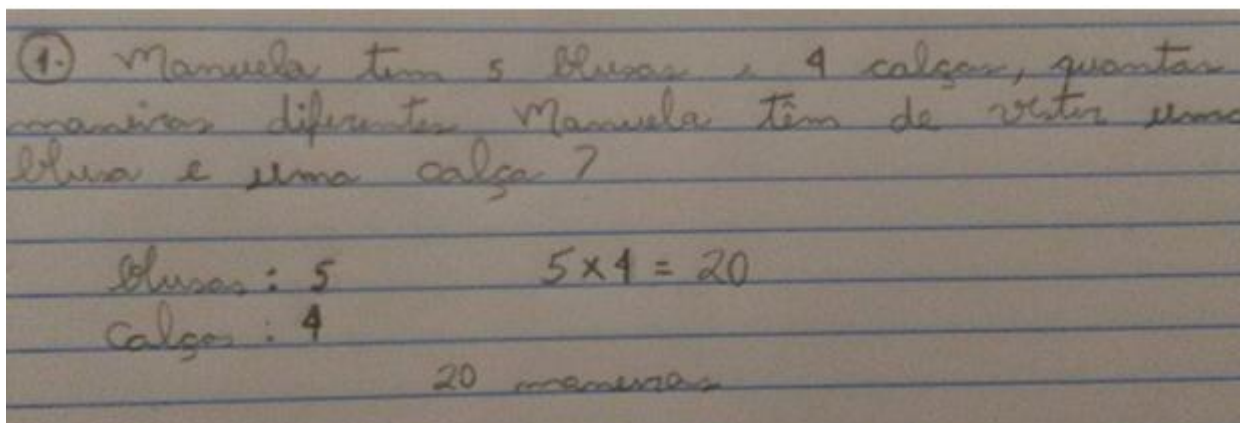 1. Manuela tem 5 blusas e 4 calças, quantas
maneiras diferentes Manuela têm de vestir uma
blusa e uma calça?
blusas: 5 5x4 = 20
calças: 4
20 maneiras